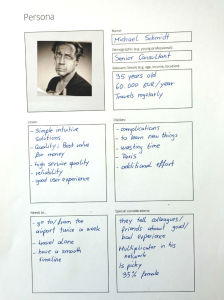 Persona
Name
Michael Schmidt
Demographic (e.g. young professional)
Senior Consultant
35 years old
60.000 EUR/year
Travels regularly
Loves
- Simple intuitive
solutions
- Quality; Best value
for money
- high service quality
- reliability
- good user experience
Dislikes
- complications
- to learn new things
- wasting time
- Taxis
- additional effort
Needs to...
- go to/from the
airport twice a week
- travel alone
- have a smooth
timeline
Special considerations
- they tell colleagues/
friends about good/
bad experience
Multiplicator in his
network
- Is picky
- 35% female